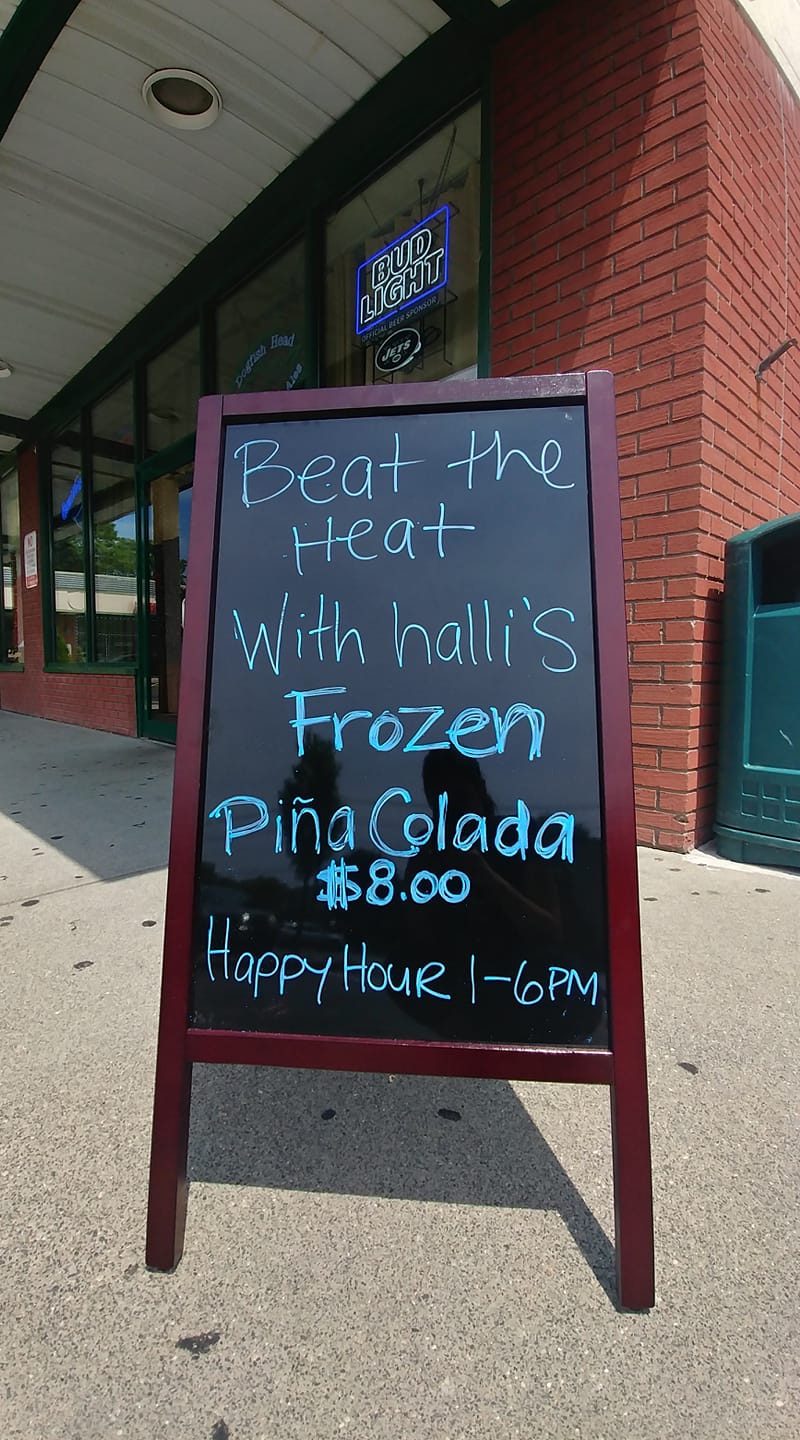 BUD
LIGHT
OFFICIAL BEER SPONSOR
JETS
Dogfish Head
Ales
Beat the
Heat
With halli's
Frozen
Piña Colada
$8.00
Happy Hour 1-6PM